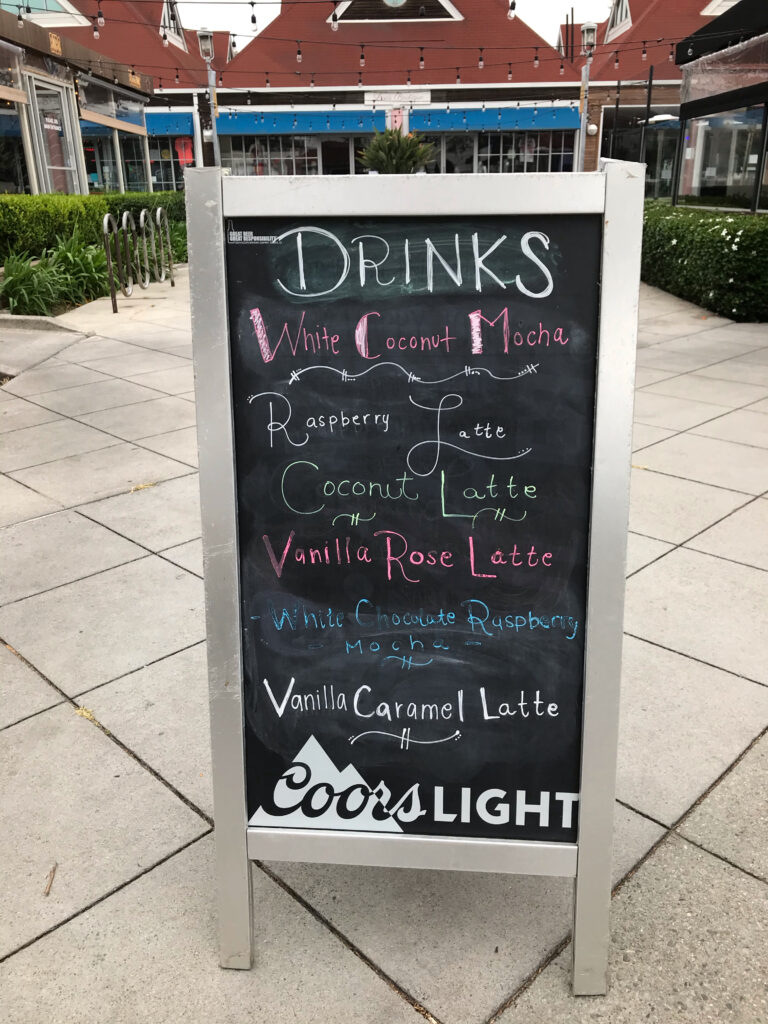 GREAT BEER
GREAT RESPONSIBILITY
DRINKS
White Coconut Mocha
Raspberry Latte
Coconut Latte
Vanilla Rose Latte
- White Chocolate Raspberry
- Mocha -
Vanilla Caramel Latte
Coors LIGHT